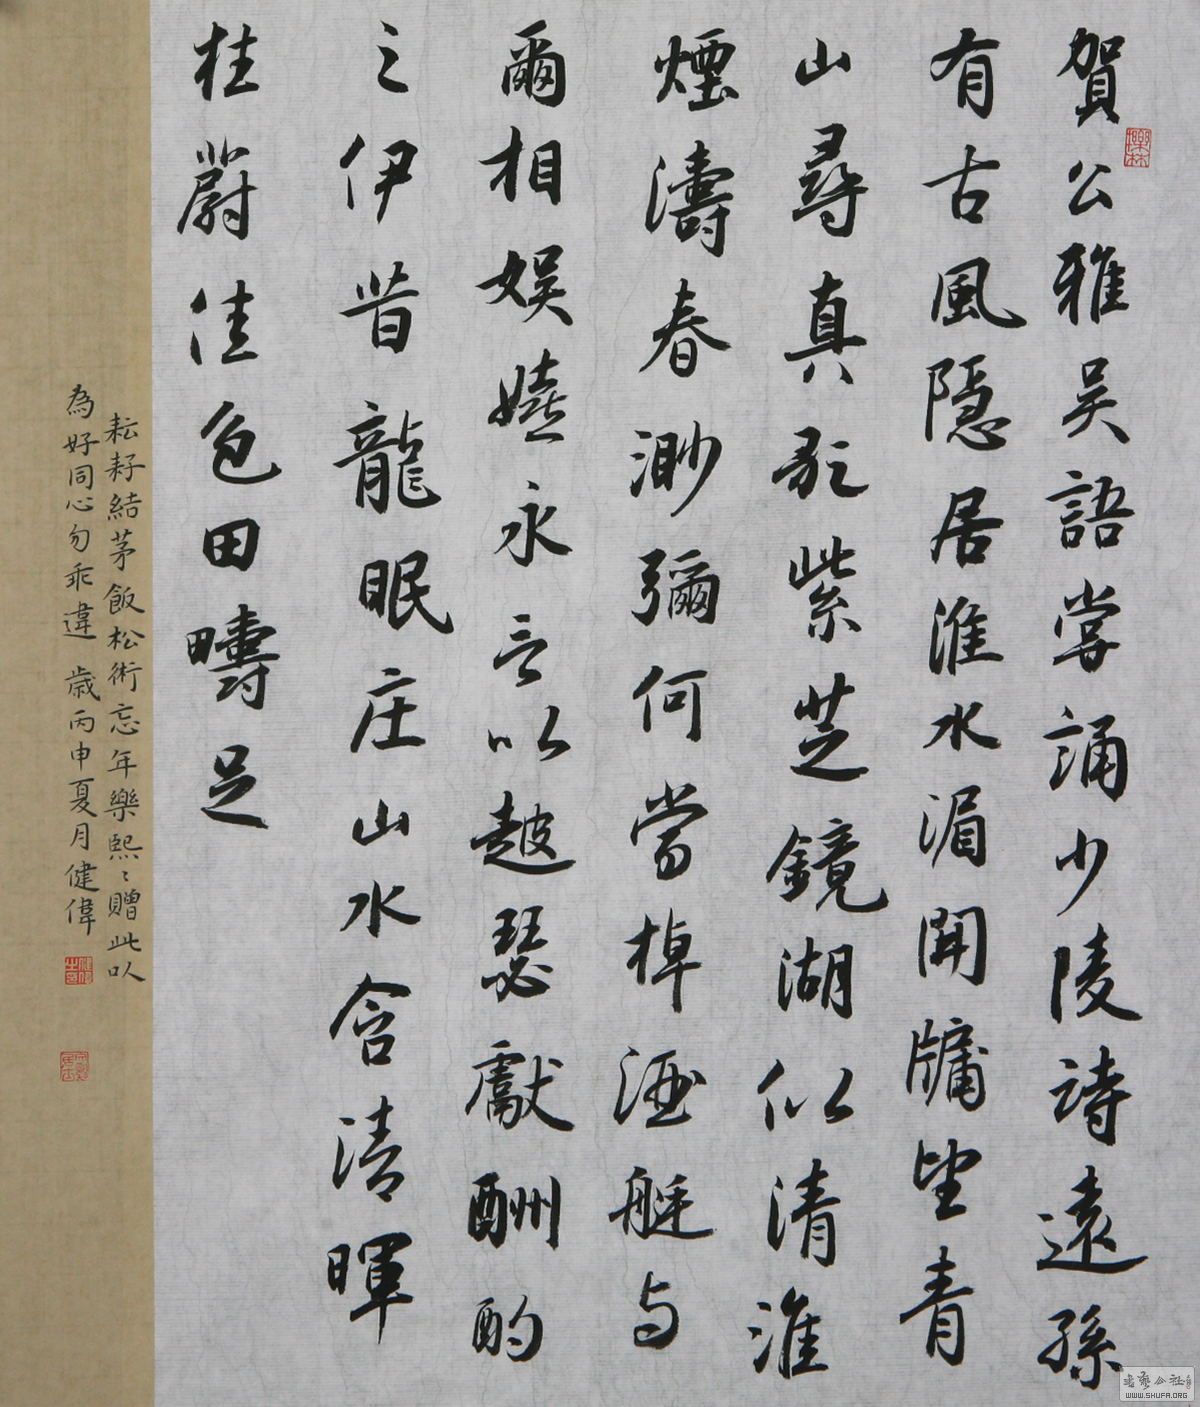 賀公雅吴語嘗誦少陵詩遠孫
有古風隱居淮水湄開牖望青
山尋真歌紫芝鏡湖似清淮
煙濤春渺彌何當棹酒艇与
爾相娱嬉永言以越瑟獻酬酌
之伊昔龍眠庄山水含清暉
桂蔚佳色田疇足
耘耔結茅飯松術忘年樂熙〻贈此以
為好同心勿乖違 歲丙申夏月健偉
WWW.SHUFA.ORG